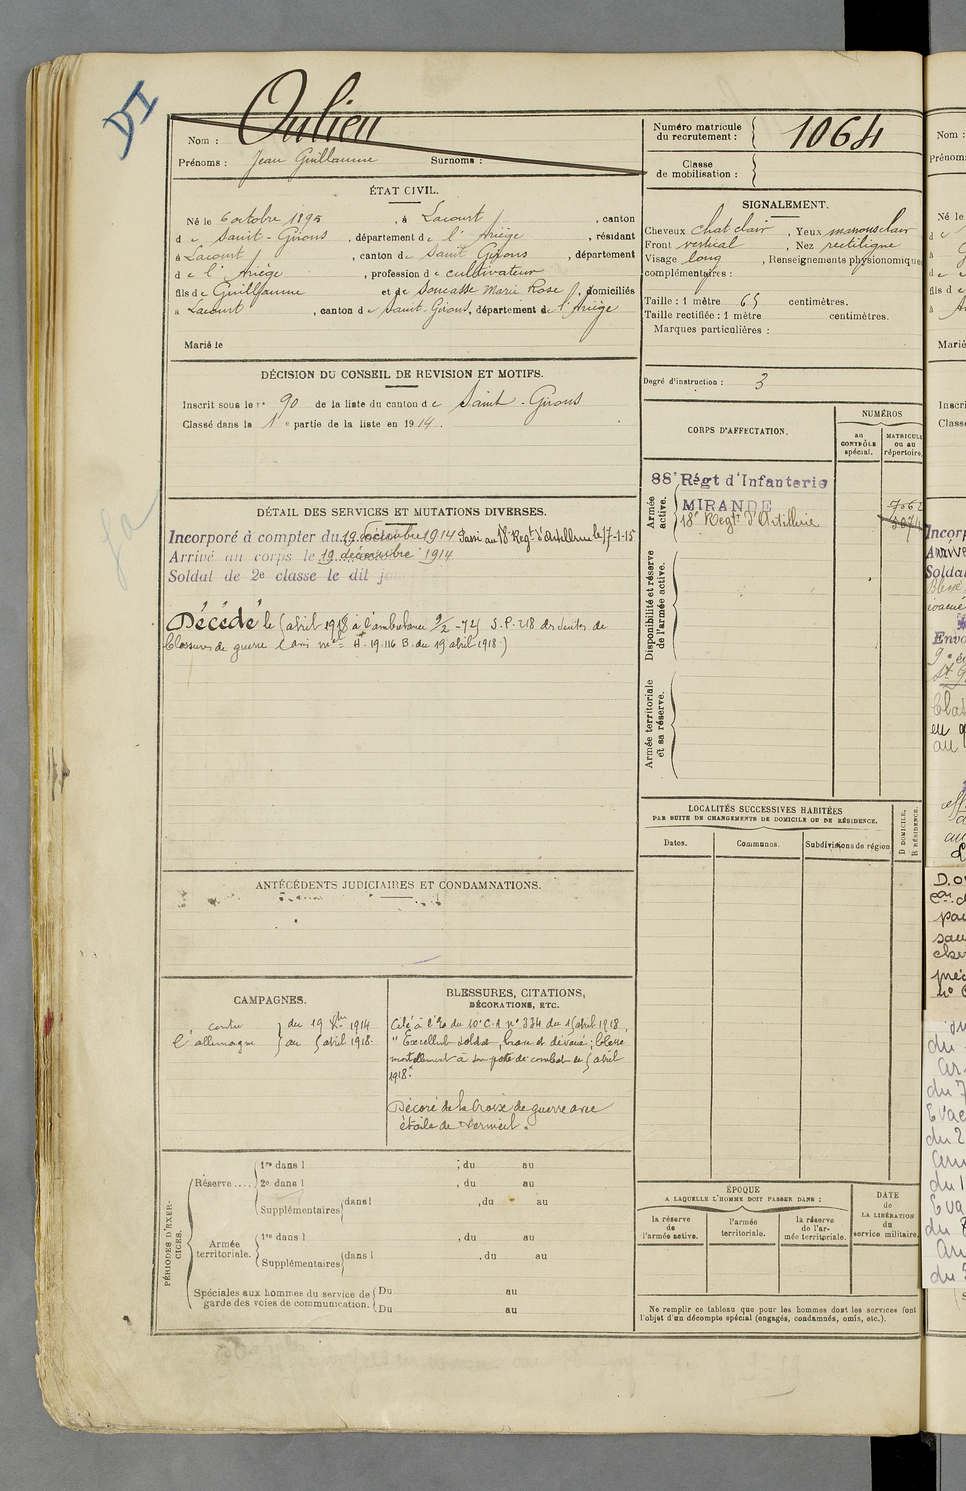 DI
Nom : Oulieu
Prénoms : Jean Guillaume Surnoms :
Numéro matricule du recrutement : 1064
Classe de mobilisation :
ÉTAT CIVIL.
Né le 6 octobre 1895, à Lacourt, canton
de Saint-Girons, département de l'Ariège, résidant
à Lacourt, canton de Saint Girons, département
de l'Ariège, profession de cultivateur
fils de Guillaume et de Soucasse Marie Rose, domiciliés
à Lacourt, canton de Saint-Girons, département de l'Ariège
Marié le
SIGNALEMENT.
Cheveux chat clair, Yeux marrons clair
Front vertical, Nez rectiligne
Visage long, Renseignements physionomiques
complémentaires :
Taille : 1 mètre 65 centimètres.
Taille rectifiée : 1 mètre centimètres.
Marques particulières :
Degré d'instruction : 3
DÉCISION DU CONSEIL DE REVISION ET MOTIFS.
Inscrit sous le n° 90 de la liste du canton de Saint-Girons
Classé dans la 1e partie de la liste en 1914.
CORPS D'AFFECTATION.
NUMÉROS
au CONTRÔLE spécial.
MATRICULE ou au répertoire.
Armée active.
88e Régt d'Infanterie
MIRANDE
18e Regt d'Artillerie
Disponibilité et réserve de l'armée active.
Armée territoriale et sa réserve.
DÉTAIL DES SERVICES ET MUTATIONS DIVERSES.
Incorporé à compter du 19 décembre 1914 Passé au 18e Regt d'Artillerie le 17-1-15
Arrivé au corps le 19 décembre 1914
Soldat de 2e classe le dit jour
Décédé le 5 avril 1918 à l'ambulance 9/2 - 72 S.P. 218 des suites de
blessures de guerre (avis mel H. 19.116 B. du 19 avril 1918)
LOCALITÉS SUCCESSIVES HABITÉES
PAR SUITE DE CHANGEMENTS DE DOMICILE OU DE RÉSIDENCE.
Dates.
Communes.
Subdivisions de région
D DOMICILE,
R RÉSIDENCE.
ANTÉCÉDENTS JUDICIAIRES ET CONDAMNATIONS.
CAMPAGNES.
contre } du 19 Xbre 1914
l'allemagne } au 5 avril 1918.
BLESSURES, CITATIONS,
DÉCORATIONS, ETC.
Cité à l'O du 10e C.A n° 334 du 15 avril 1918,
"Excellent soldat, brave et dévoué; blessé
mortellement à son poste de combat le 5 avril
1918."
Décoré de la Croix de guerre avec
étoile de Vermeil.
PÉRIODES D'EXERCICES.
Réserve....
1re dans l ; du au
2e dans l , du au
Supplémentaires dans l , du au
Armée territoriale.
1re dans l , du au
Supplémentaires dans l , du au
Spéciales aux hommes du service de garde des voies de communication.
Du au
Du au
ÉPOQUE
A LAQUELLE L'HOMME DOIT PASSER DANS :
la réserve de l'armée active.
l'armée territoriale.
la réserve de l'armée territoriale.
DATE de LA LIBÉRATION du service militaire.
Ne remplir ce tableau que pour les hommes dont les services font
l'objet d'un décompte spécial (engagés, condamnés, omis, etc.).